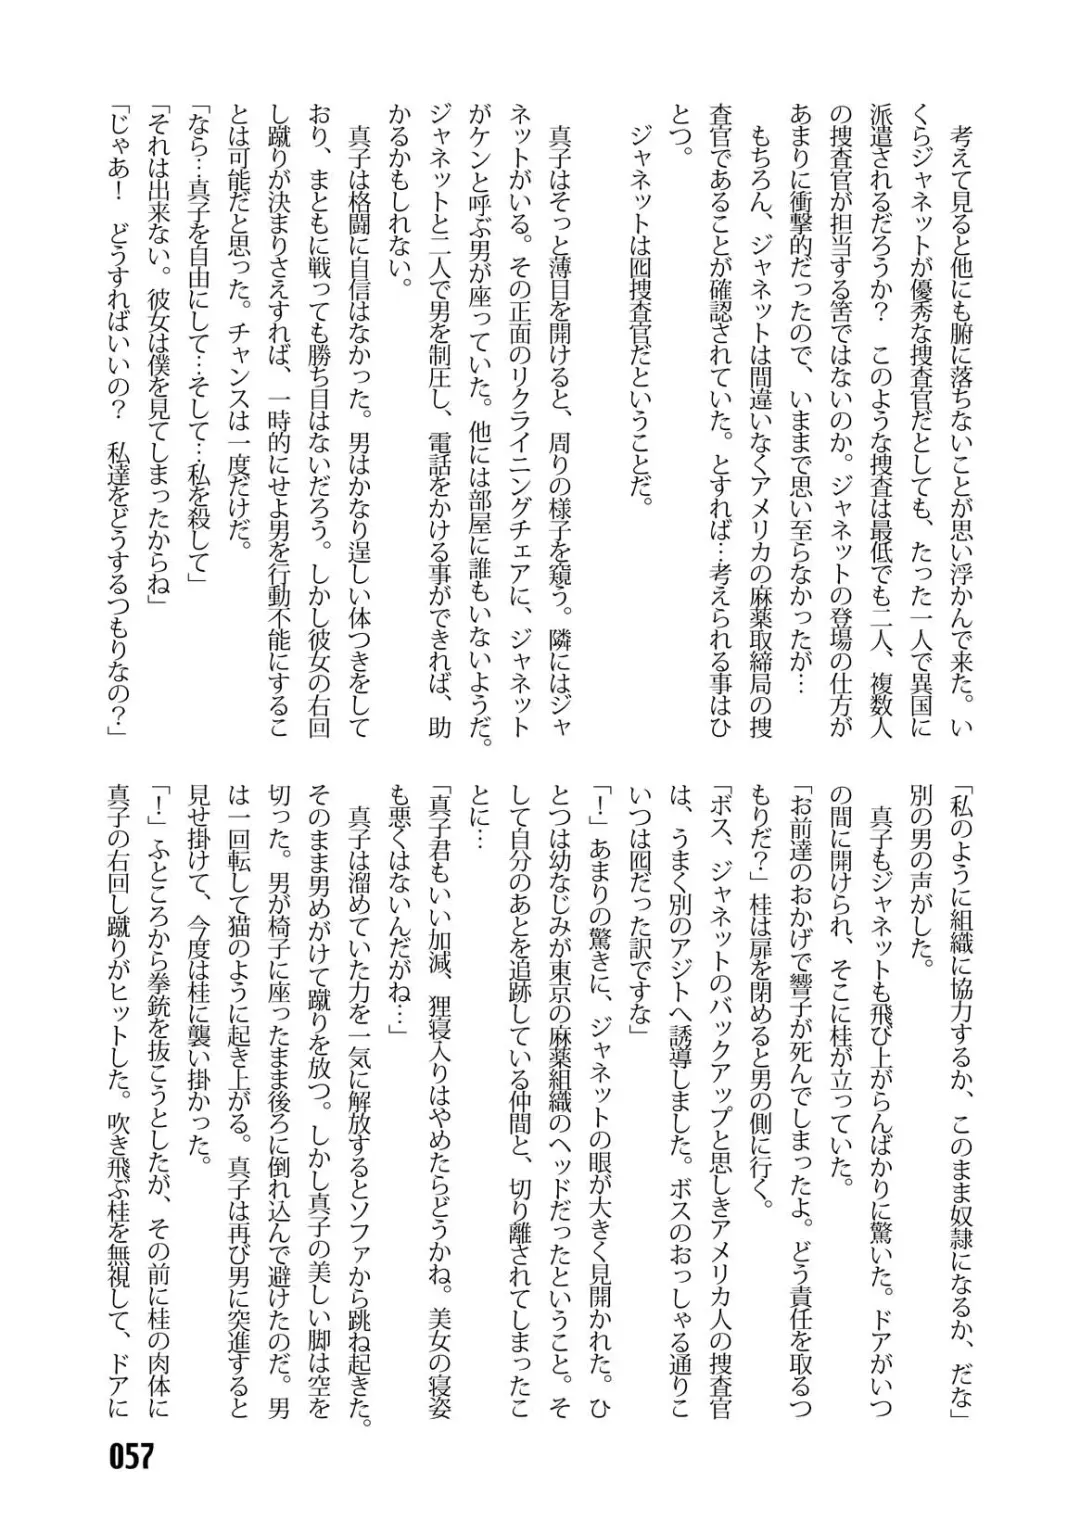 考えて見ると他にも腑に落ちないことが思い浮かんで来た。い
くらジャネットが優秀な捜査官だとしても、たった一人で異国に
派遣されるだろうか？　このような捜査は最低でも二人、複数人
の捜査官が担当する筈ではないのか。ジャネットの登場の仕方が
あまりに衝撃的だったので、いままで思い至らなかったが…
　もちろん、ジャネットは間違いなくアメリカの麻薬取締局の捜
査官であることが確認されていた。とすれば…考えられる事はひ
とつ。
　ジャネットは囮捜査官だということだ。
　真子はそっと薄目を開けると、周りの様子を窺う。隣にはジャ
ネットがいる。その正面のリクライニングチェアに、ジャネット
がケンと呼ぶ男が座っていた。他には部屋に誰もいないようだ。
ジャネットと二人で男を制圧し、電話をかける事ができれば、助
かるかもしれない。
　真子は格闘に自信はなかった。男はかなり逞しい体つきをして
おり、まともに戦っても勝ち目はないだろう。しかし彼女の右回
し蹴りが決まりさえすれば、一時的にせよ男を行動不能にするこ
とは可能だと思った。チャンスは一度だけだ。
「なら…真子を自由にして…そして…私を殺して」
「それは出来ない。彼女は僕を見てしまったからね」
「じゃあ！　どうすればいいの？　私達をどうするつもりなの？」
「私のように組織に協力するか、このまま奴隷になるか、だな」
別の男の声がした。
　真子もジャネットも飛び上がらんばかりに驚いた。ドアがいつ
の間に開けられ、そこに桂が立っていた。
「お前達のおかげで響子が死んでしまったよ。どう責任を取るつ
もりだ？」桂は扉を閉めると男の側に行く。
「ボス、ジャネットのバックアップと思しきアメリカ人の捜査官
は、うまく別のアジトへ誘導しました。ボスのおっしゃる通りこ
いつは囮だった訳ですな」
「！」あまりの驚きに、ジャネットの眼が大きく見開かれた。ひ
とつは幼なじみが東京の麻薬組織のヘッドだったということ。そ
して自分のあとを追跡している仲間と、切り離されてしまったこ
とに…
「真子君もいい加減、狸寝入りはやめたらどうかね。美女の寝姿
も悪くはないんだがね…」
　真子は溜めていた力を一気に解放するとソファから跳ね起きた。
そのまま男めがけて蹴りを放つ。しかし真子の美しい脚は空を
切った。男が椅子に座ったまま後ろに倒れ込んで避けたのだ。男
は一回転して猫のように起き上がる。真子は再び男に突進すると
見せ掛けて、今度は桂に襲い掛かった。
「！」ふところから拳銃を抜こうとしたが、その前に桂の肉体に
真子の右回し蹴りがヒットした。吹き飛ぶ桂を無視して、ドアに
057